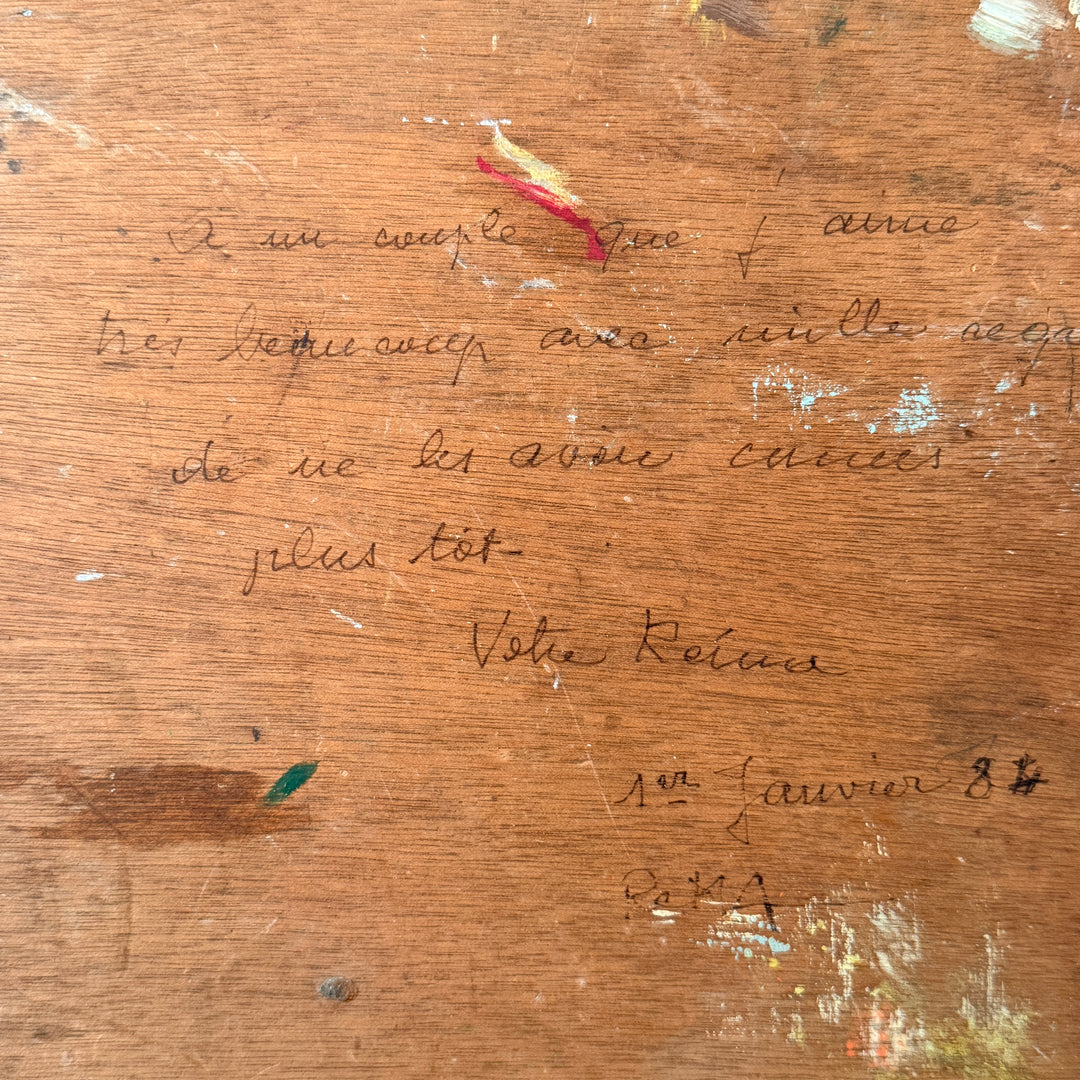 à un couple que j' aime
très beaucoup avec mille reg
de ne les avoir connus
plus tôt-
Votre
1er Janvier 84